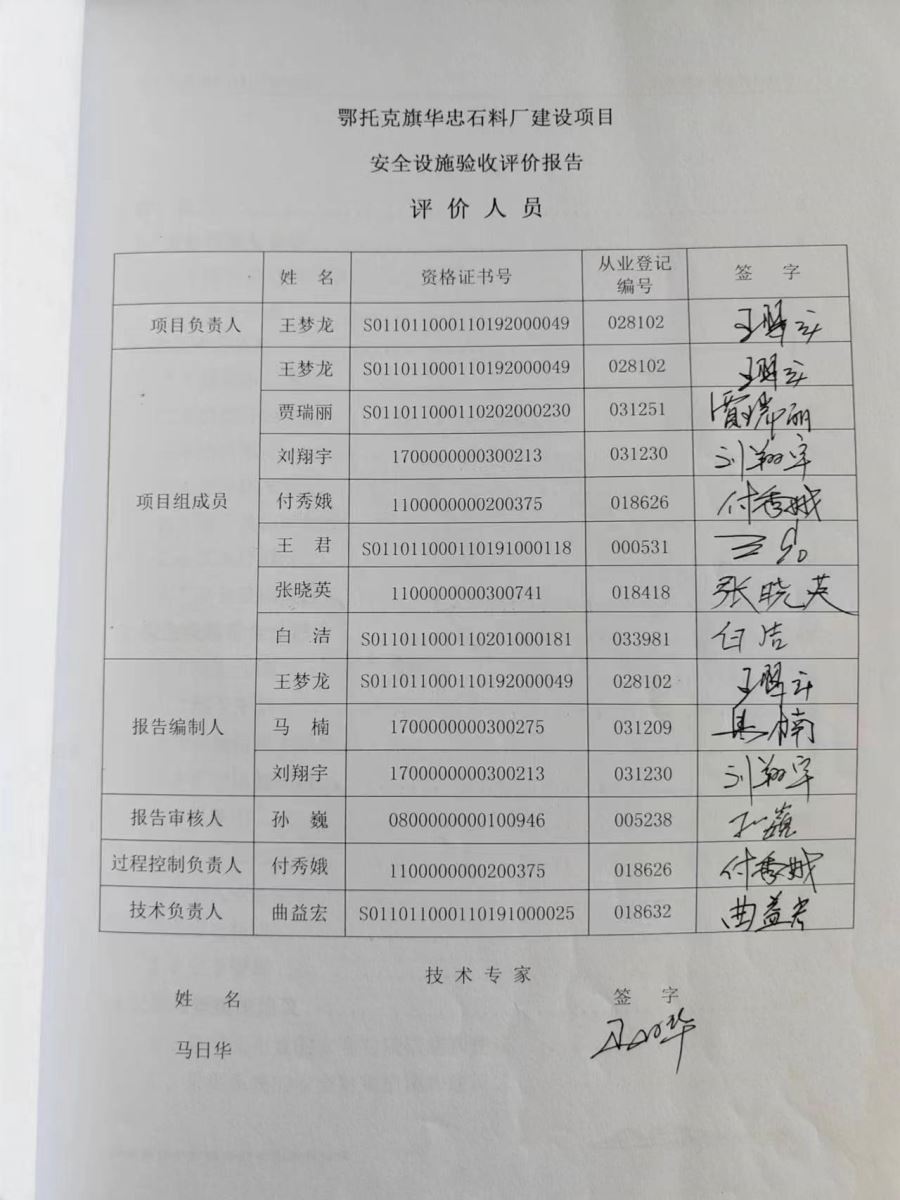 鄂托克旗华忠石料厂建设项目
安全设施验收评价报告
评价人员
姓 名 资格证书号 从业登记编号 签 字
项目负责人 王梦龙 S011011000110192000049 028102 王梦龙
项目组成员 王梦龙 S011011000110192000049 028102 王梦龙
贾瑞丽 S011011000110202000230 031251 贾瑞丽
刘翔宇 1700000000300213 031230 刘翔宇
付秀娥 1100000000200375 018626 付秀娥
王 君 S011011000110191000118 000531 王君
张晓英 1100000000300741 018418 张晓英
白 洁 S011011000110201000181 033981 白洁
报告编制人 王梦龙 S011011000110192000049 028102 王梦龙
马 楠 1700000000300275 031209 马楠
刘翔宇 1700000000300213 031230 刘翔宇
报告审核人 孙 巍 0800000000100946 005238 孙巍
过程控制负责人 付秀娥 1100000000200375 018626 付秀娥
技术负责人 曲益宏 S011011000110191000025 018632 曲益宏
技术专家
姓 名 签 字
马日华 马日华